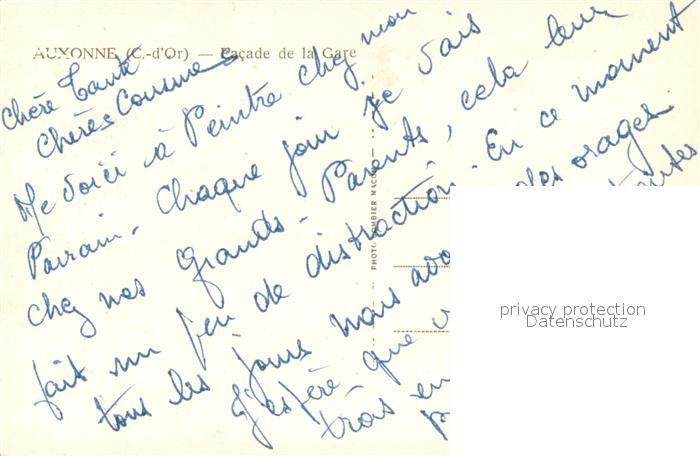 AUXONNE (C.-d'Or) — Façade de la Gare
Chère Tante
Chères Cousines
Me voici à Peintre chez mon
Parrain. Chaque jour je vais
chez nos Grands-Parents, cela leur
fait un peu de distraction. En ce moment
tous les jours nous avo des orages
J'espère que v toutes
très en
PHOTO COMBIER MACON
privacy protection
Datenschutz